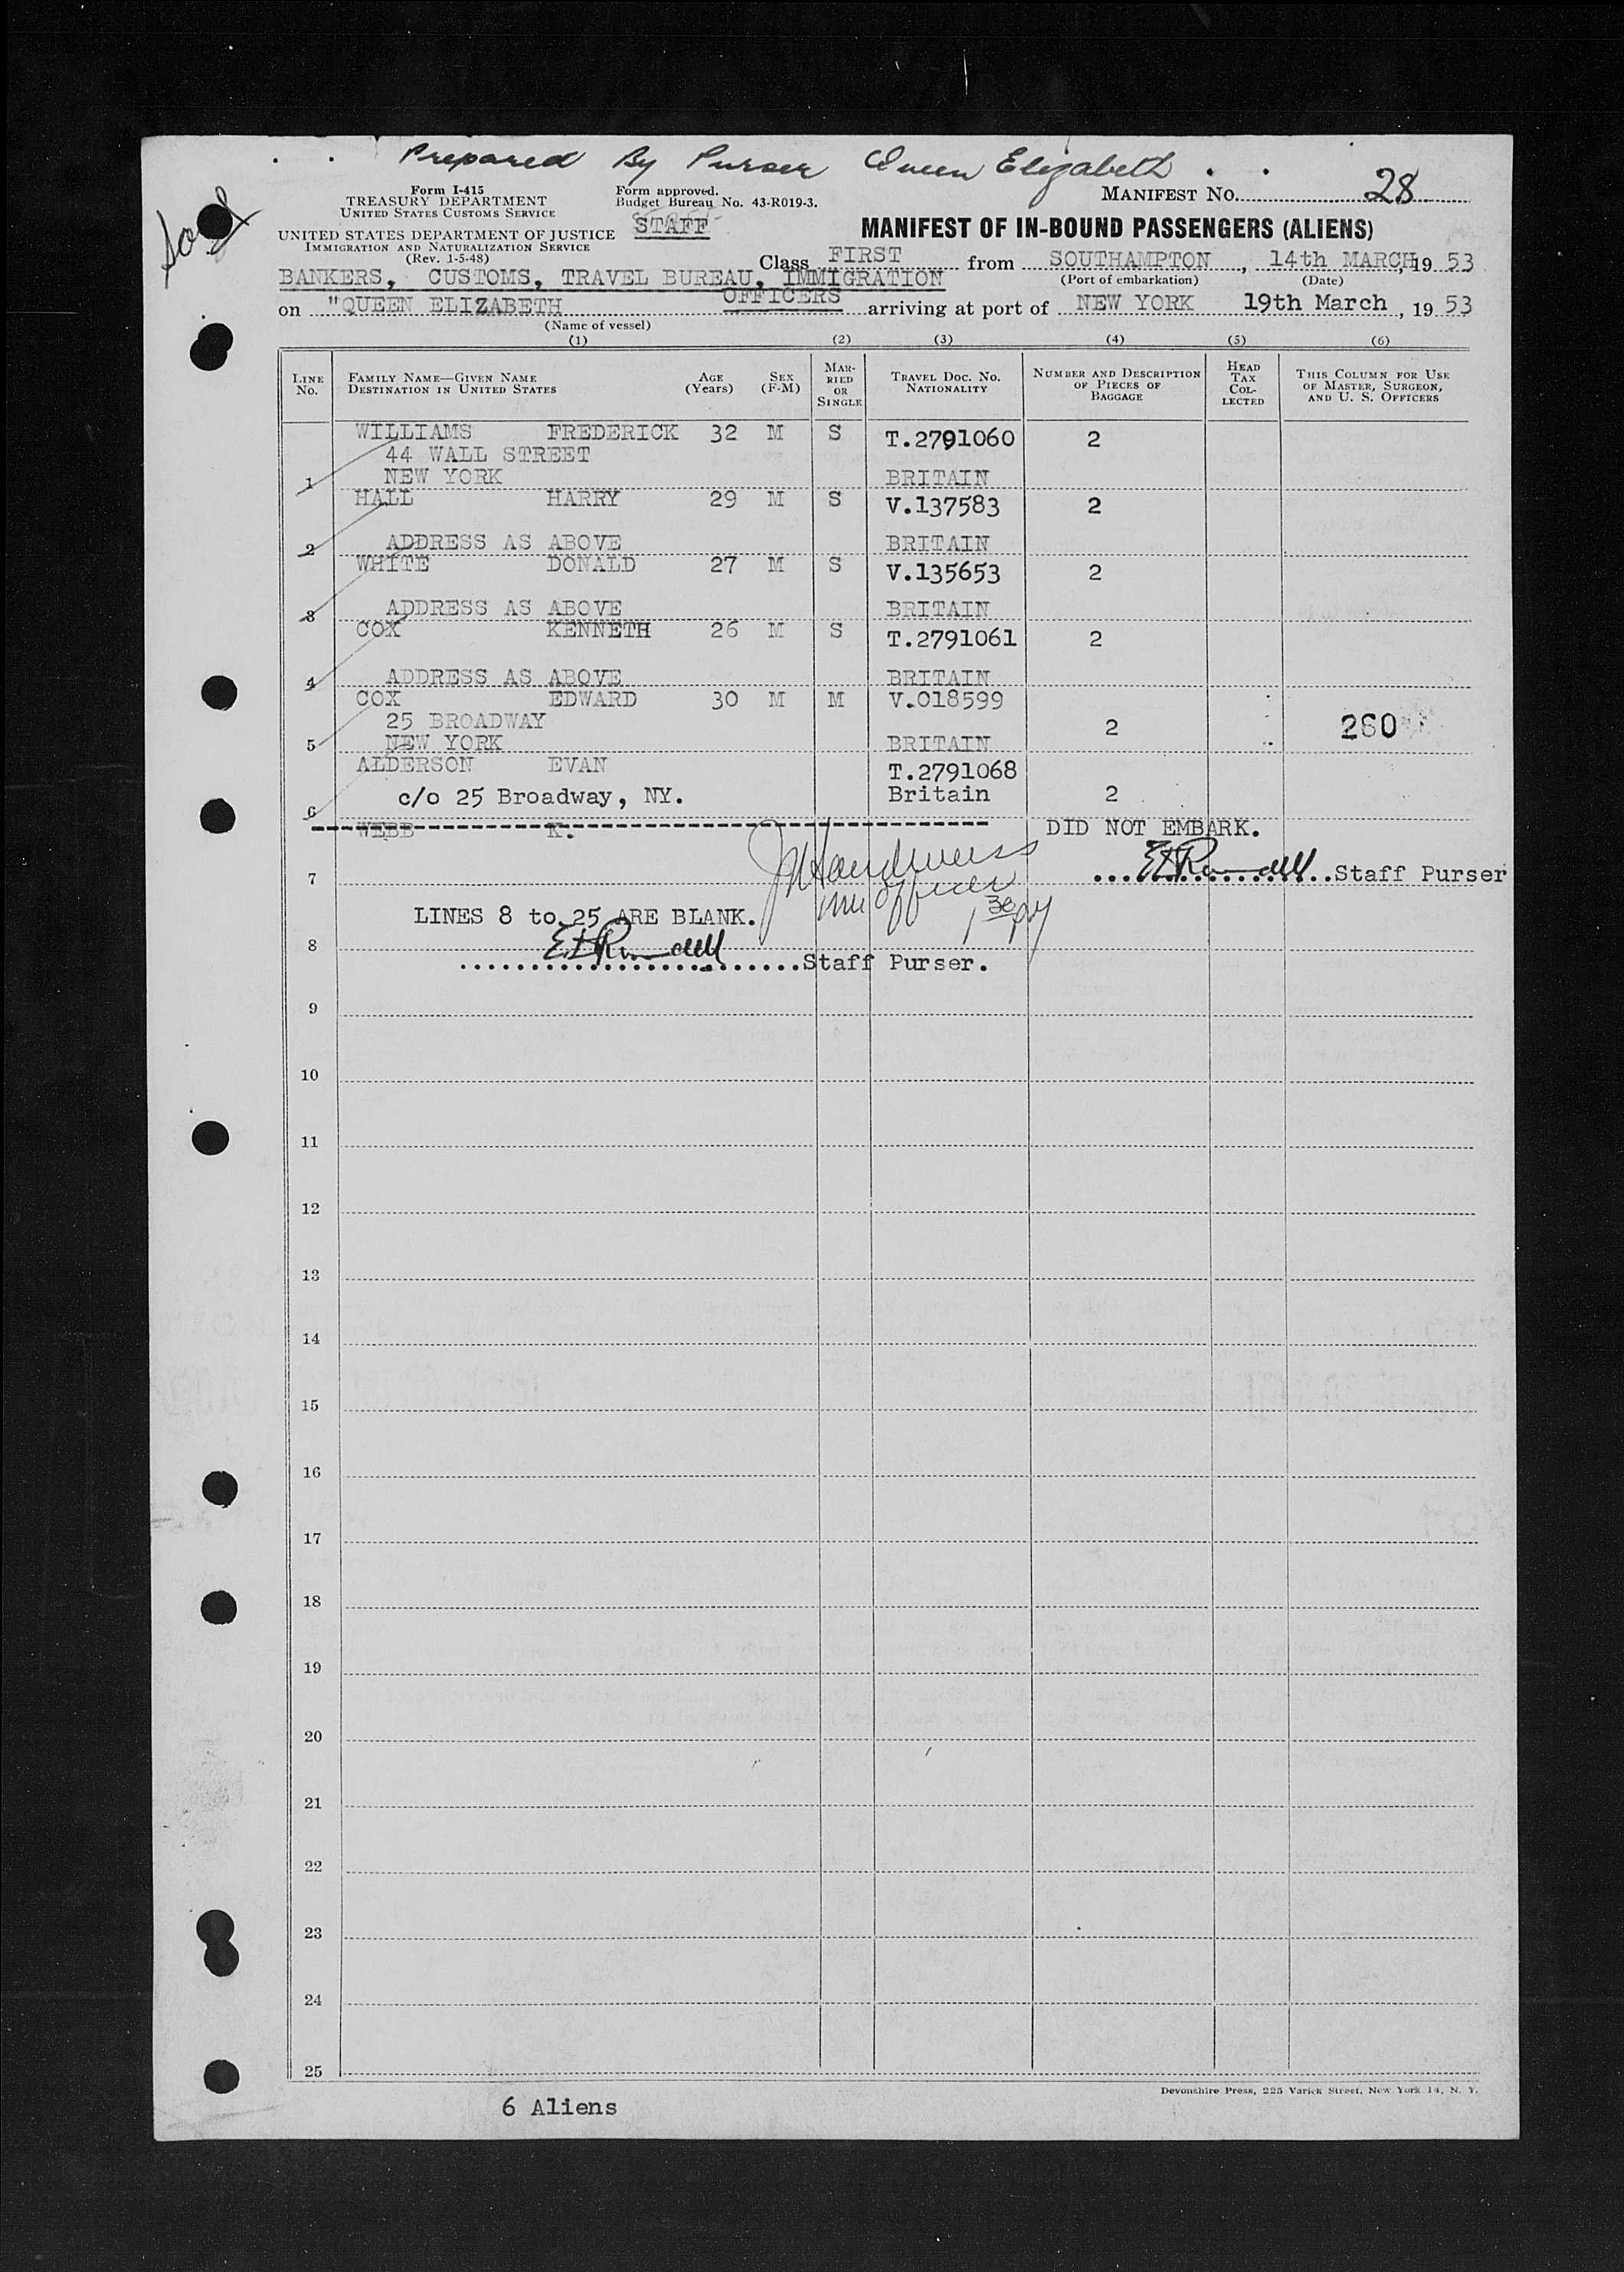 Prepared By Purser Queen Elizabeth
Form I-415
TREASURY DEPARTMENT
UNITED STATES CUSTOMS SERVICE
UNITED STATES DEPARTMENT OF JUSTICE
IMMIGRATION AND NATURALIZATION SERVICE
(Rev. 1-5-48)
Form approved.
Budget Bureau No. 43-R019-3.
STAFF
MANIFEST No. 28
MANIFEST OF IN-BOUND PASSENGERS (ALIENS)
Class FIRST from SOUTHAMPTON, 14th MARCH, 19 53
(Port of embarkation) (Date)
BANKERS, CUSTOMS, TRAVEL BUREAU, IMMIGRATION
OFFICERS
on "QUEEN ELIZABETH arriving at port of NEW YORK 19th March, 19 53
(Name of vessel)
(1) (2) (3) (4) (5) (6)
LINE No. FAMILY NAME—GIVEN NAME DESTINATION IN UNITED STATES AGE (Years) SEX (F-M) MARRIED OR SINGLE TRAVEL DOC. NO. NATIONALITY NUMBER AND DESCRIPTION OF PIECES OF BAGGAGE HEAD TAX COLLECTED THIS COLUMN FOR USE OF MASTER, SURGEON, AND U. S. OFFICERS
WILLIAMS FREDERICK 32 M S T.2791060 2
44 WALL STREET
1 NEW YORK BRITAIN
HALL HARRY 29 M S V.137583 2
2 ADDRESS AS ABOVE BRITAIN
WHITE DONALD 27 M S V.135653 2
3 ADDRESS AS ABOVE BRITAIN
COX KENNETH 26 M S T.2791061 2
4 ADDRESS AS ABOVE BRITAIN
COX EDWARD 30 M M V.018599
25 BROADWAY 2 260
5 NEW YORK BRITAIN
ALDERSON EVAN T.2791068
6 c/o 25 Broadway, NY. Britain 2
WEBB K. DID NOT EMBARK.
7 Staff Purser
LINES 8 to 25 ARE BLANK.
8
Staff Purser.
9
10
11
12
13
14
15
16
17
18
19
20
21
22
23
24
25
Devonshire Press, 225 Varick Street, New York 14, N. Y.
6 Aliens